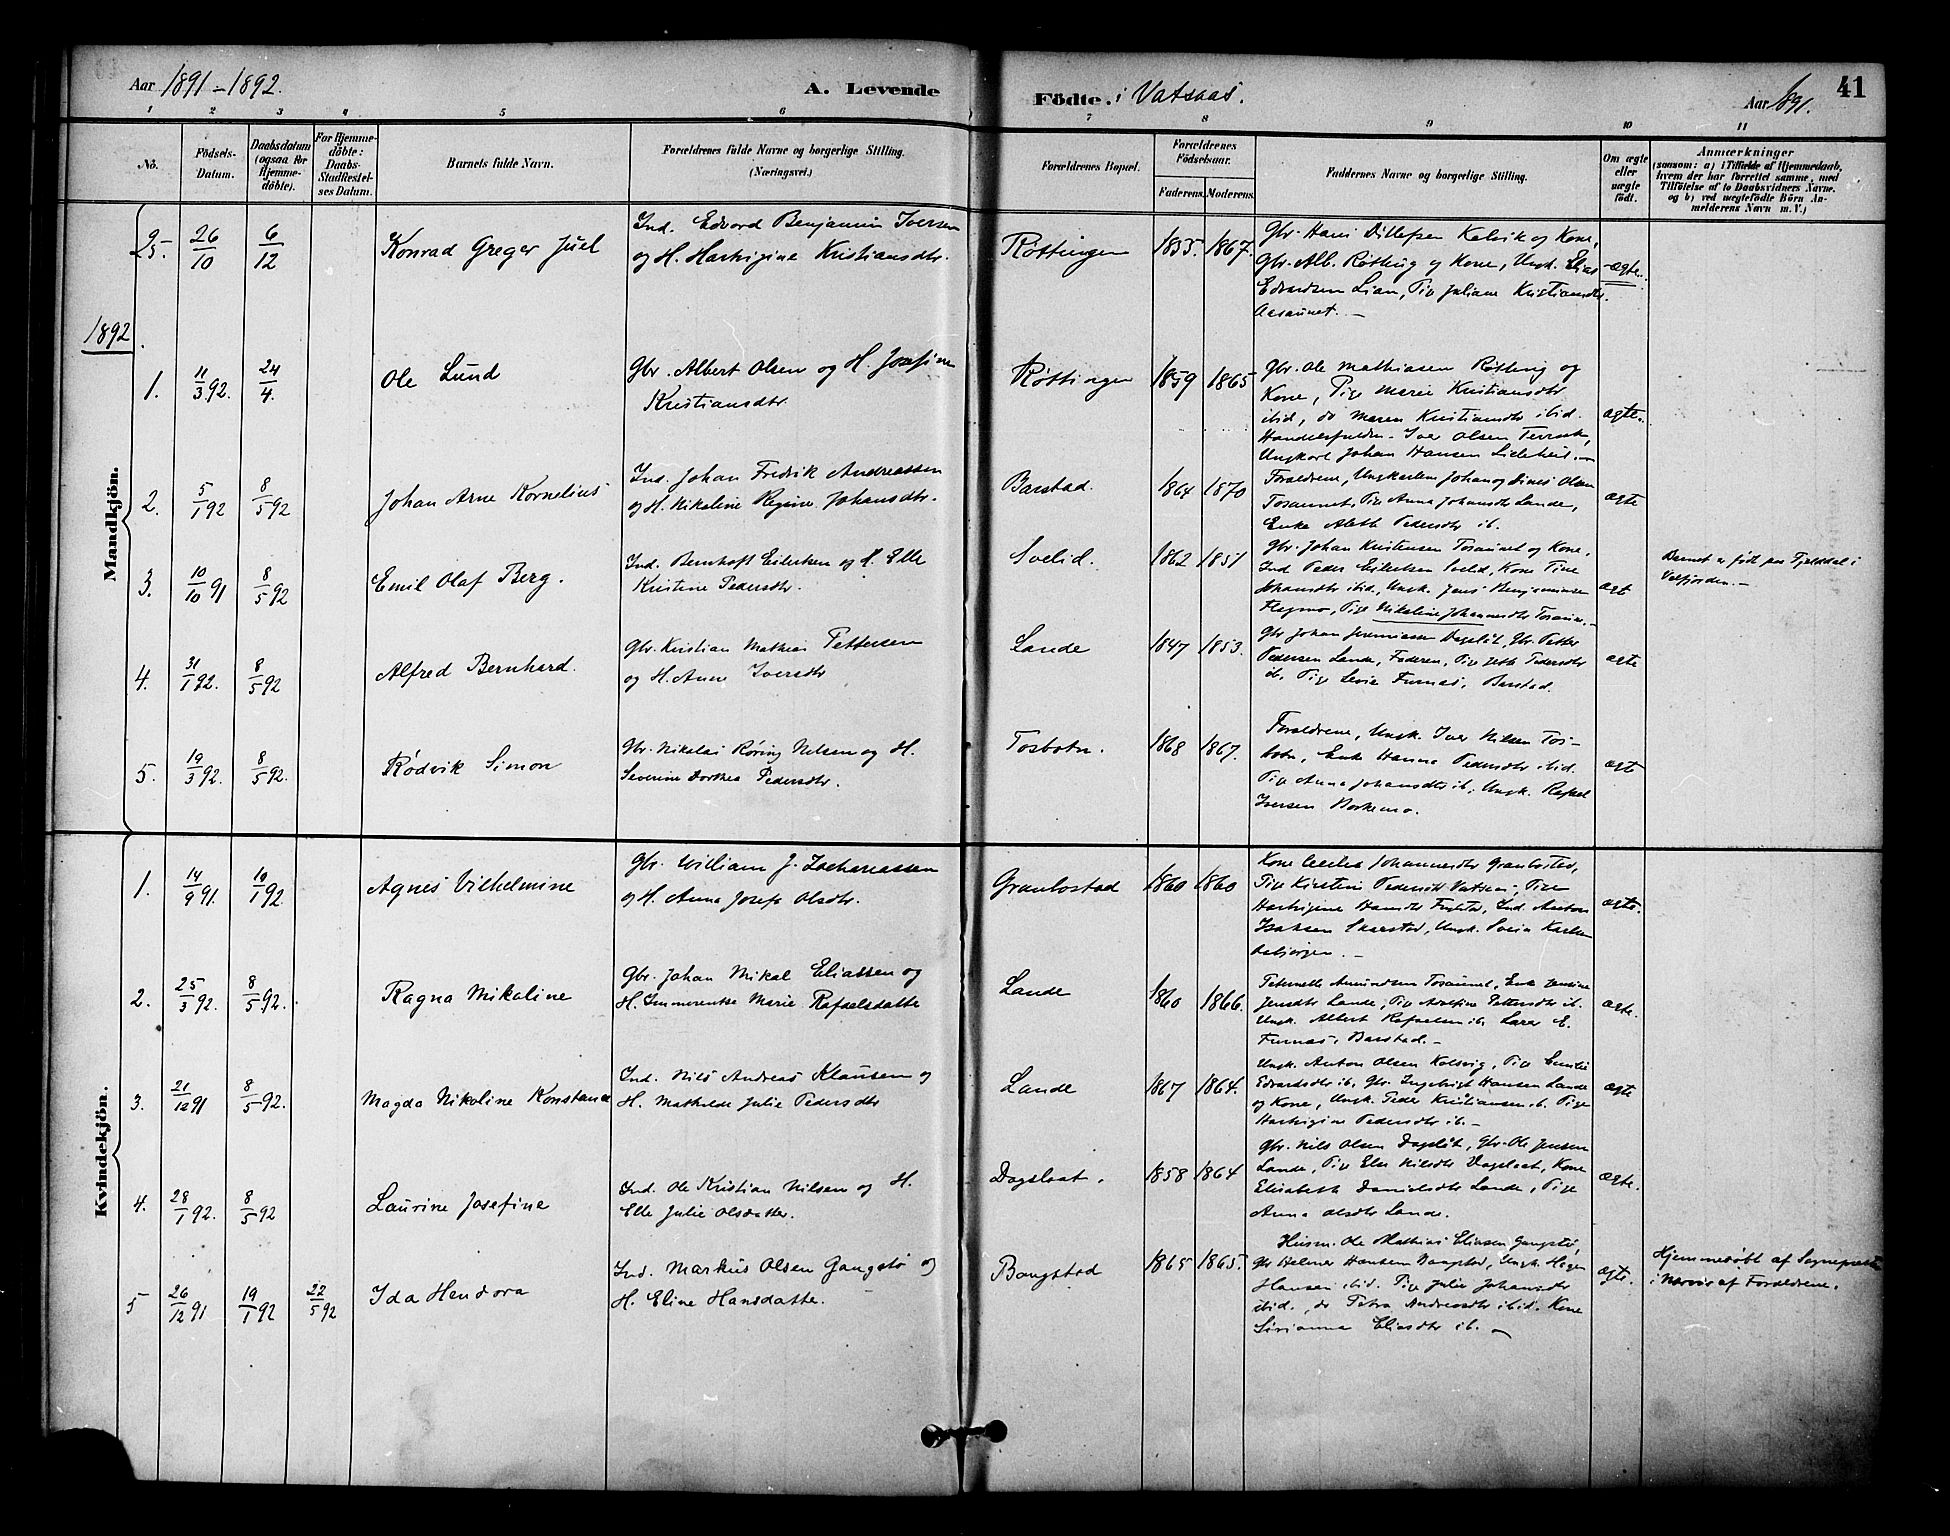 Aar 1891-1892.
A. Levende
Födte. i Vatsaas.
Aar 1891.
41
1 2 3 4 5 6 7 8 9 10 11
No.
Födsels-
Datum.
Daabsdatum
(ogsaa for
Hjemme-
döbte).
For Hjemme-
döbte:
Daabs-
Stadfestel-
ses Datum.
Barnets fulde Navn.
Forældrenes fulde Navne og borgerlige Stilling.
(Næringsvei.)
Forældrenes Bopæl.
Forældrenes
Födselsaar.
Faderens.
Moderens.
Faddernes Navne og borgerlige Stilling.
Om ægte
eller
uægte
födt.
Anmærkninger
(saasom: a) i Tilfælde af Hjemmedaab,
hvem der har forrettet samme, med
Tilföielse af to Daabsvidners Navne.
og b) ved uægtefödte Börn An-
melderens Navn m. V.)
25. 26/10 6/12 Konrad Greger Juel
Ind. Edvard Benjamin Iversen
og H. Hartvigine Kristiansdtr.
Røttingen 1855. 1867.
Gbr. Hans Ditlefsen Kelvik og Kone,
Gbr. Alb. Røtting og Kone, Ungk. Elias
Edvardsen Lian, Pige Juliane Kristiansdtr.
Aasaunet.
ægte.
1892
Mandkjön.
1. 11/3 92. 24/4. Ole Lund
Gbr. Albert Olsen og H. Josefine
Kristiansdtr.
Røttingen 1859 1865
Gbr. Ole Mathiasen Røtting og
Kone, Pige Marie Kristiansdtr
ibid, do Maren Kristiansdtr ibid.
Iver Olsen Terraak,
Ungkarl Johan Hansen
ægte.
2. 5/1 92 8/5 92 Johan Arne Kornelius
Ind. Johan Fredrik Andreassen
og H. Nikoline Regine Johansdtr.
Barstad. 1864 1870
Forældrene, Ungkarlen Johan og Dines Olsen
Tosaunet, Pige Anna Johansdtr Lande,
Enke Aleth Pedersdtr ib.
ægte
3. 10/10 91 8/5 92 Emil Olaf Berg.
Ind. Bernhoft Eilertsen og H. Elle
Kristine Pedersdtr.
Svelid. 1862 1851
Gbr. Johan Kristensen Tosaunet og Kone,
Ind Peder Eilertsen Svelid, Kone Tine
Johansdtr ibid, Ungk. Jens Benjaminsen
Flegmo, Pige Nikoline Johannesdtr Tosaun.
ægt
Barnet er født paa Fjelddal i
Velfjorden.
4. 31/1 92. 8/5 92 Alfred Bernhard.
Gbr. Kristian Mathias Pettersen
og H. Anne Iversdtr
Lande 1847 1853.
Gbr Johan Jeremiasen Dagslåt, Gbr. Petter
Pedersen Lande, Faderen, Pige Jeth Pedersdtr
ib, Pige Levie Furnæs, Barstad.
ægte
5. 19/3 92. 8/5 92. Rødvik Simon
Gbr. Nikolai Røring Nilsen og H.
Severine Dorthea Pedersdtr.
Tosbotn. 1868 1867.
Forældrene, Ungk. Iver Nilsen Tos-
botn, Enke Hanna Pedersdtr ibid.
Pige Anna Johansdtr ib, Ungk. Rafael
Iversen Borkemo.
ægte
Kvindekjön.
1. 14/9 91. 10/1 92. Agnes Vilhelmine
Gbr. William J. Zachariassen
og H. Anna Josefa Olsdtr.
Granbostad 1860 1860
Kone Cecilie Johannesdtr Granbostad,
Pige Kirstine Pedersdtr Vatsaas, Pige
Hartvigine Hansdtr Fuglstad, Ind. Anton
Isaksen Skarstad, Ungk. Svein Karlsen
ægte.
2. 25/3 92. 8/5 92. Ragna Mikaline
Gbr. Johan Mikal Eliassen og
H. Immerentse Marie Rafaelsdatter
Lande 1860 1866.
Peternelle Amundsen Tosaunet, Enke
Jensdtr Lande, Pige Adolfine Pettersdtr ib.
Ungk. Albert Rafaelsen ib. Lars E.
Furnæs, Barstad.
ægte.
3. 21/12 91 8/5 92. Magda Nikoline Konstance
Ind. Nils Andreas Klausen og
H. Mathilde Julie Pedersdtr
Lande 1867 1864.
Ungk. Anton Olsen Kolsvig, Pige Emilie
Edvardsdtr ib. Gbr. Ingebrigt Hansen Lande
og Kone, Ungk. Peder Kristiansen ib. Pige
Hartvigine Pedersdtr ib.
ægte
4. 28/1 92. 8/5 92 Laurine Josefine
Ind. Ole Kristian Nilsen og H.
Elle Julie Olsdatter.
Dagslaat. 1858 1864
Gbr. Nils Olsen Dagslåt, Gbr. Ole Jensen
Lande, Pige Else Nilsdtr Dagslaat, Kone
Elisabeth Danielsdtr Lande, Pige
Anna Olsdtr Lande.
ægte.
5 26/12 91 19/1 92 22/5 92 Ida Hendora
Ind. Markus Olsen Gangstø og
H. Eline Hansdatter.
Bangstad 1865 1865.
Husm. Ole Mathias Eliasen Gangstø,
Gbr Helmer Hansen Bangstad, Ungk. Hagen
Hansen ibid. Pige Julie Johansdtr
ibid., do Petra Andreasdtr ibid. Kone
Sirianna Eliasdtr ib.
ægte.
Hjemmedøbt af Sognepresten
i Nærvær af Forældrene.